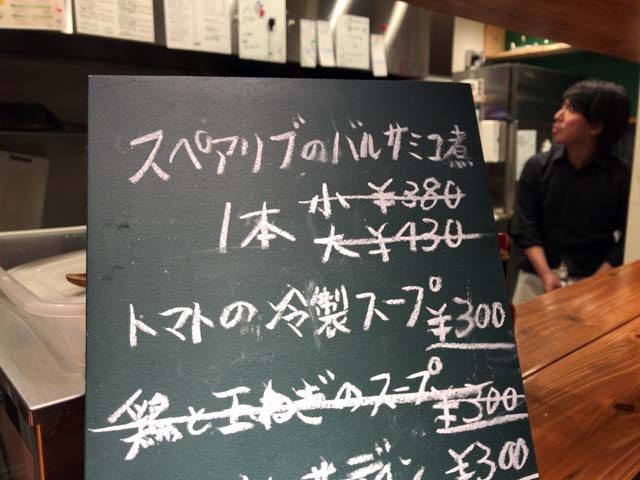 スペアリブのバルサミコ煮
1本 小 ¥380
大 ¥430
トマトの冷製スープ ¥300
鶏と玉ねぎのスープ ¥300
サーディン ¥300